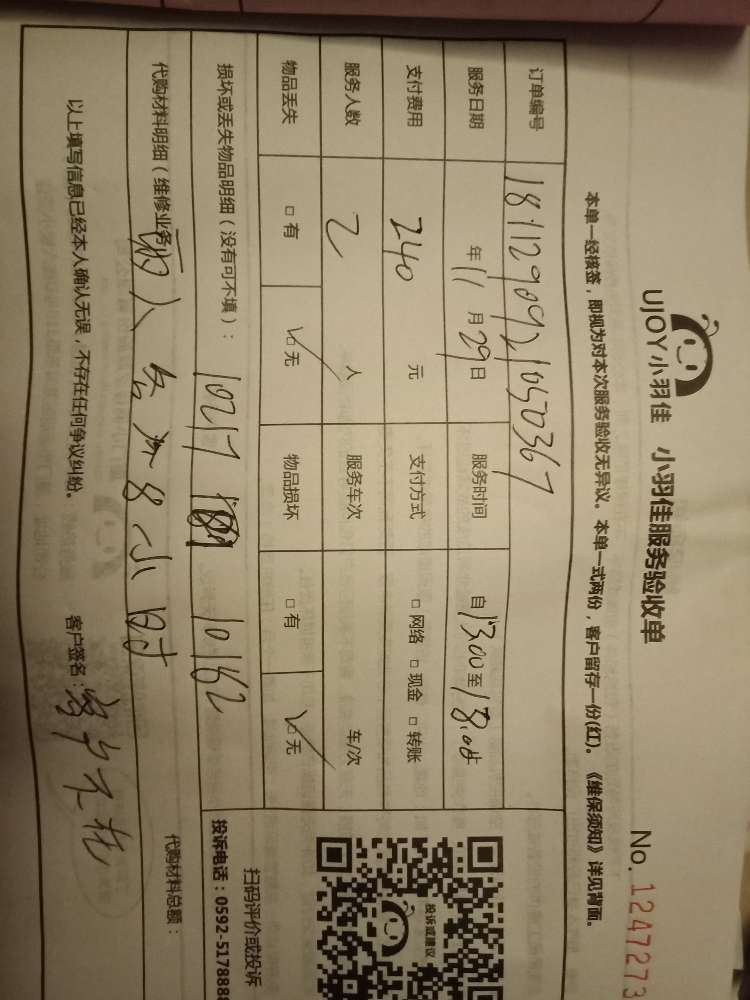 UJOY小羽佳 小羽佳服务验收单 No. 1247273
本单一经核签，即视为对本次服务验收无异议。本单一式两份，客户留存一份(红)。《维保须知》详见背面。
订单编号 1811290921050367
服务日期 年 11 月 29 日 服务时间 自 13:00 至 18:00
支付费用 240 元 支付方式 □ 网络 □ 现金 □ 转账
服务人数 2 人 服务车次 车/次
物品丢失 □ 有 □ 无 物品损坏 □ 有 □ 无
投诉或建议
扫码评价或投诉
损坏或丢失物品明细（没有可不填）： 10217 10162
投诉电话：0592-5178888
代购材料明细（维修业务 代购材料总额：
两人 共 8小时
以上填写信息已经本人确认无误，不存在任何争议纠纷。 客户签名：